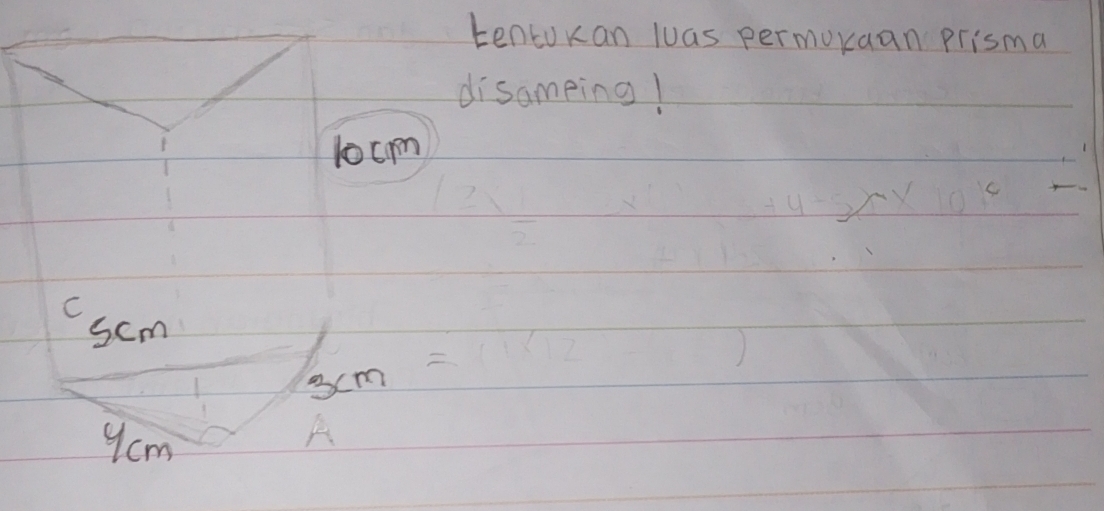 tentukan luas permukaan prisma
disamping!
10cm
C
5cm
3cm
A
4cm
=